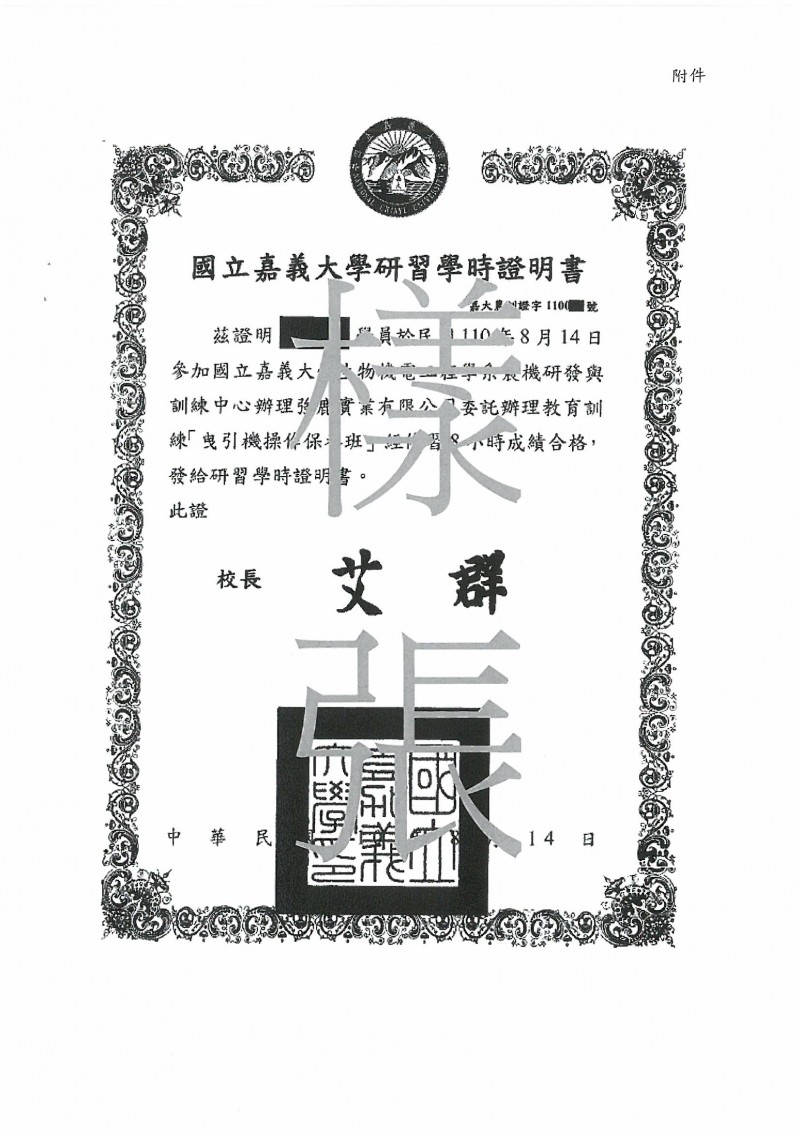 附件
NATIONAL CHIAYI UNIVERSITY
國立嘉義大學研習學時證明書
嘉大農訓證字 1100 號
茲證明 學員於民國110年8月14日
參加國立嘉義大學生物機電工程學系農機研發與
訓練中心辦理強鹿實業有限公司委託辦理教育訓
練「曳引機操作保養班」經修習8小時成績合格,
發給研習學時證明書。
此證
校長 艾群
國立嘉義大學印
中華民 8月14日
樣張